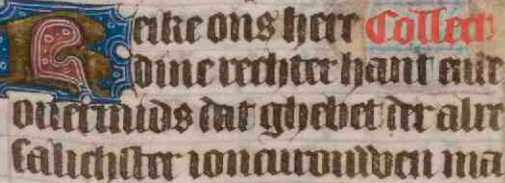 Reike ons herr Collect
dine rechter hant ende
ouermids dat ghebet der alre
salichster ioncurouwen ma